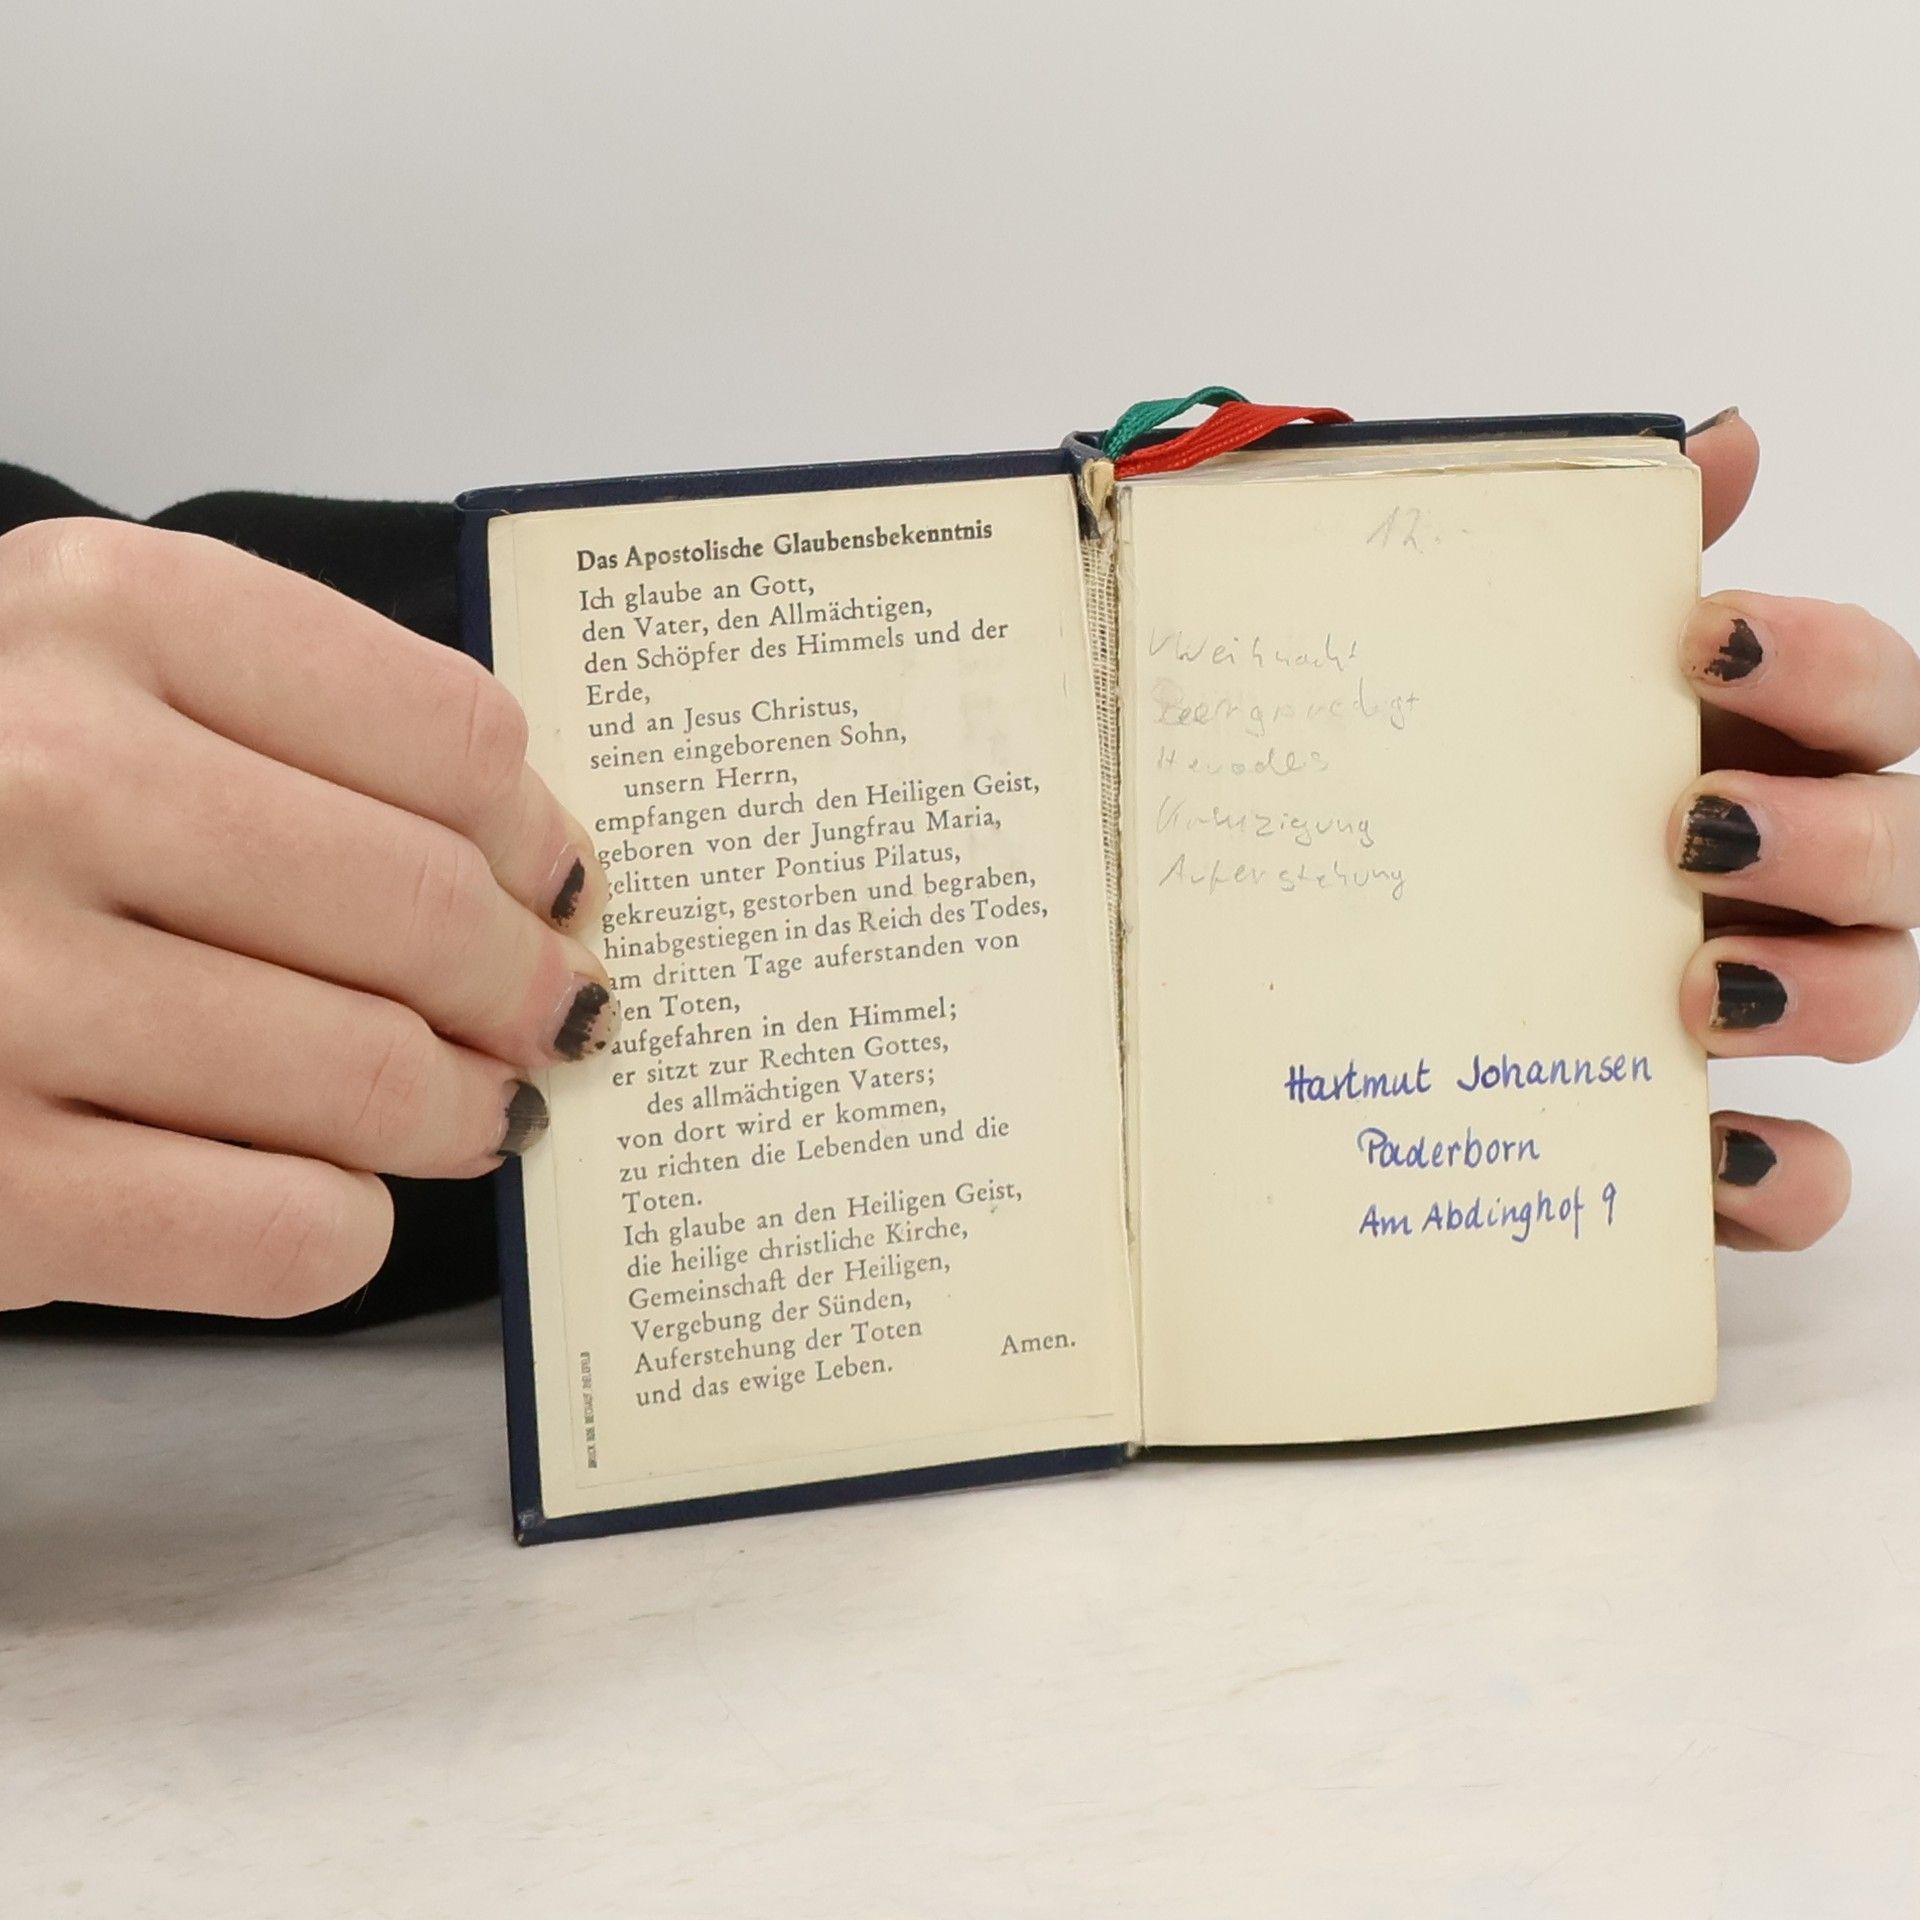 Das Apostolische Glaubensbekenntnis
Ich glaube an Gott,
den Vater, den Allmächtigen,
den Schöpfer des Himmels und der
Erde,
und an Jesus Christus,
seinen eingeborenen Sohn,
unsern Herrn,
empfangen durch den Heiligen Geist,
geboren von der Jungfrau Maria,
gelitten unter Pontius Pilatus,
gekreuzigt, gestorben und begraben,
hinabgestiegen in das Reich des Todes,
am dritten Tage auferstanden von
den Toten,
aufgefahren in den Himmel;
er sitzt zur Rechten Gottes,
des allmächtigen Vaters;
von dort wird er kommen,
zu richten die Lebenden und die
Toten.
Ich glaube an den Heiligen Geist,
die heilige christliche Kirche,
Gemeinschaft der Heiligen,
Vergebung der Sünden,
Auferstehung der Toten
und das ewige Leben. Amen.
12.-
Weihnacht
Bergpredigt
Herodes
Auferstehung
Hartmut Johannsen
Paderborn
Am Abdinghof 9